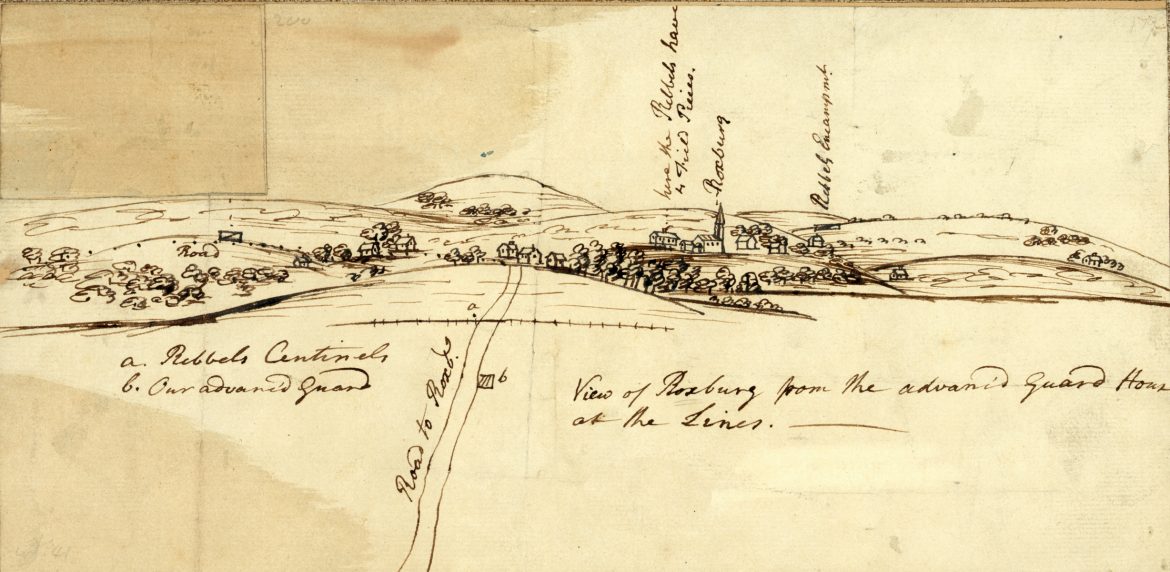 here the Rebbels have
4 Field Pieces.
Roxburg
Rebbels Encampmt.
Road
a
a. Rebbels Centinels
b. Our advanc'd Guard
b
Road to Roxb.
View of Roxburg from the advanc'd Guard Hous
at the Lines.